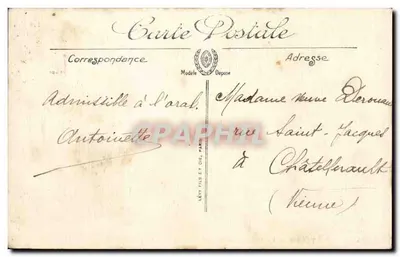 Carte Postale
Correspondance
Adresse
Modèle Déposé
Admissible à l'oral.
Antoinette
Madame veuve
rue Saint-Jacques
à Châtellerault
(Vienne)
LÉVY FILS ET CIE, PARIS
CPAPHIL